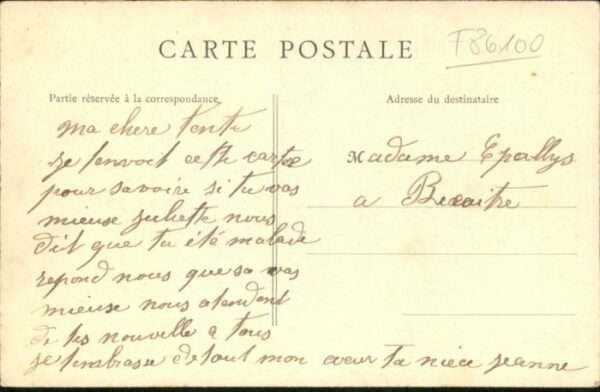 CARTE POSTALE
F86100
Partie réservée à la correspondance
Adresse du destinataire
ma chere tente
je t'envoit cette carte
pour savoire si tu vas
mieuse juliette nous
dit que tu été malade
repond nous que sa vas
mieuse nous atendont
de tes nouvelle a tous
je t'embrasse de tout mon cœur ta niece jeanne
Madame Epallys
a